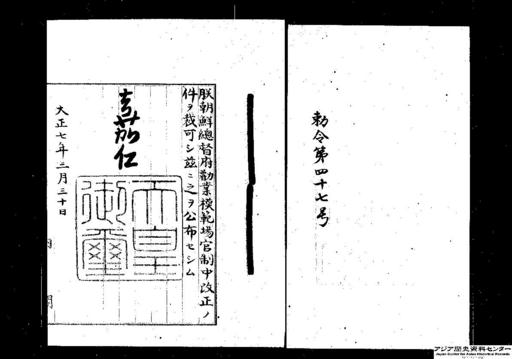 勅令第四十七号
朕朝鮮總督府勸業模範場官制中改正ノ
件ヲ裁可シ茲ニ之ヲ公布セシム
嘉仁
天皇
御璽
大正七年三月三十日
内閣
アジア歴史資料センター
Japan Center for Asian Historical Records